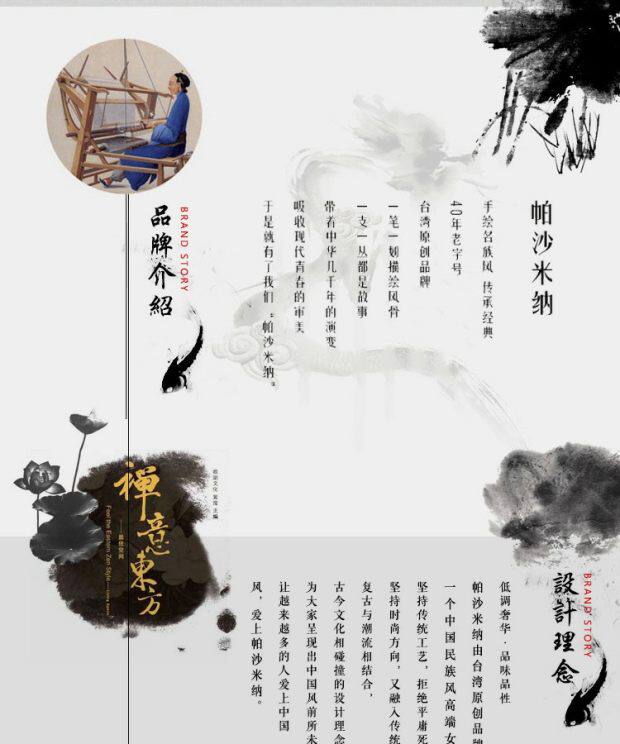 品牌介紹
BRAND STORY
帕沙米纳
手绘名族风 传承经典
40年老字号
台湾原创品牌
一笔一划描绘风骨
一支一丛都是故事
带着中华几千年的演变
吸收现代青春的审美
于是就有了我们“帕沙米纳。”
禅意東方
Feel the Eastern Zen Style
設計理念
BRAND STORY
低调奢华·品味品性
帕沙米纳由台湾原创品牌
一个中国民族风高端女
坚持传统工艺，拒绝平庸死
坚持时尚方向，又融入传统
复古与潮流相结合，
古今文化相碰撞的设计理念
为大家呈现出中国风前所未
让越来越多的人爱上中国
风，爱上帕沙米纳。